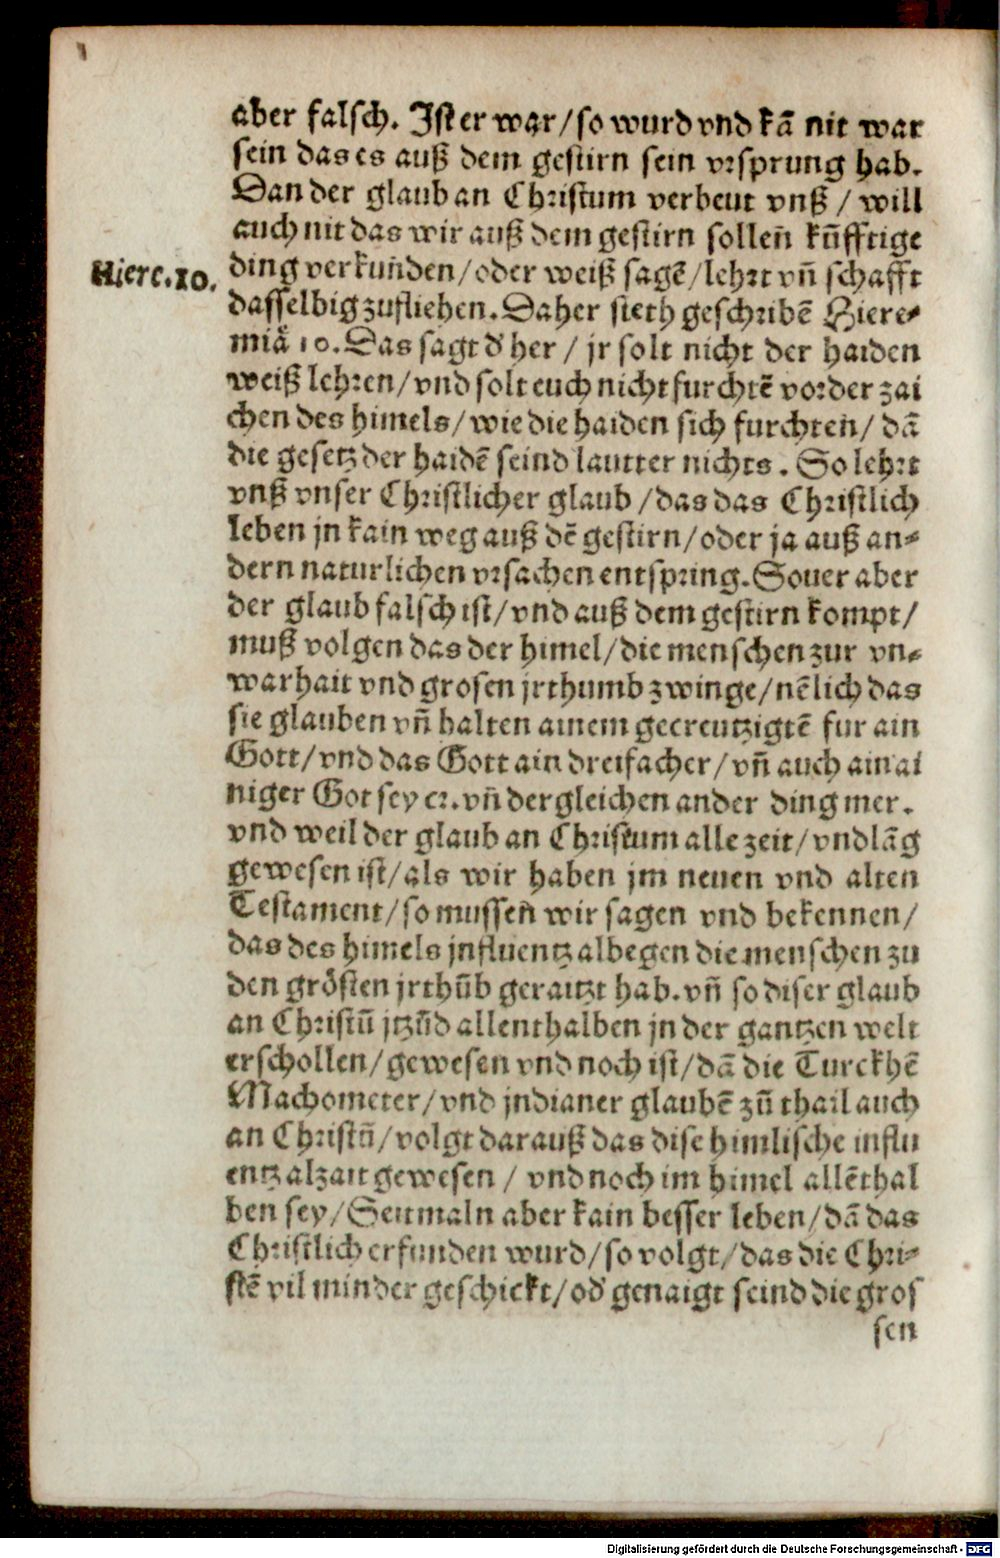 aber falsch. Jst er war / so wurd vnd kā nit war
sein das es auß dem gestirn sein vrsprung hab.
Dan der glaub an Christum verbeut vnß / will
auch nit das wir auß dem gestirn solleñ kūfftige
Hiere. 10.
ding verkuñden / oder weiß sagē / lehrt vñ schafft
dasselbig zufliehen. Daher steth geschribē Hiere⸗
miä 10. Das sagt d' her / jr solt nicht der haiden
weiß lehren / vnd solt euch nicht furchtē vor der zai
chen des himels / wie die haiden sich furchteñ / dā
die gesetz der haidē seind lautter nichts. So lehrt
vnß vnser Christlicher glaub / das das Christlich
leben jn kain weg auß dē gestirn / oder ja auß an⸗
dern naturlichen vrsachen entspring. Souer aber
der glaub falsch ist / vnd auß dem gestirn kompt /
muß volgen das der himel / die menschen zur vn⸗
warhait vnd grosen jrthumb zwinge / nēlich das
sie glauben vñ halten ainem gecreutzigtē fur ain
Gott / vnd das Gott ain dreifacher / vñ auch ain ai
niger Got sey ꝛc. vñ dergleichen ander ding mer.
vnd weil der glaub an Christum alle zeit / vnd lāg
gewesen ist / als wir haben jm neuen vnd alten
Testament / so musseñ wir sagen vnd bekennen /
das des himels jnfluentz albegen die menschen zu
den grösten jrthūb geraitzt hab. vñ so diser glaub
an Christū jtzūd allenthalben jn der gantzen welt
erschollen / gewesen vnd noch ist / dā die Turckhē
Machometer / vnd jndianer glaubē zū thail auch
an Christū / volgt darauß das dise himlische influ
entz alzait gewesen / vnd noch im himel allēthal
ben sey / Seitmaln aber kain besser leben / dā das
Christlich erfunden wurd / so volgt / das die Chri⸗
stē vil minder geschickt / od' genaigt seind die gros
sen
Digitalisierung gefördert durch die Deutsche Forschungsgemeinschaft - DFG